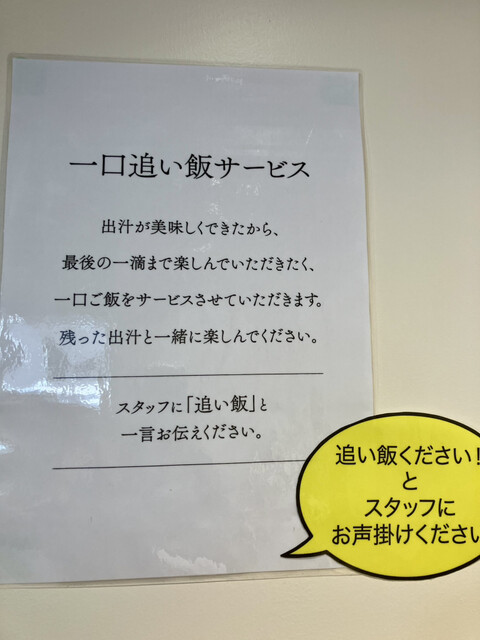 一口追い飯サービス
出汁が美味しくできたから、
最後の一滴まで楽しんでいただきたく、
一口ご飯をサービスさせていただきます。
残った出汁と一緒に楽しんでください。
スタッフに「追い飯」と
一言お伝えください。
追い飯ください!
と
スタッフに
お声掛けください